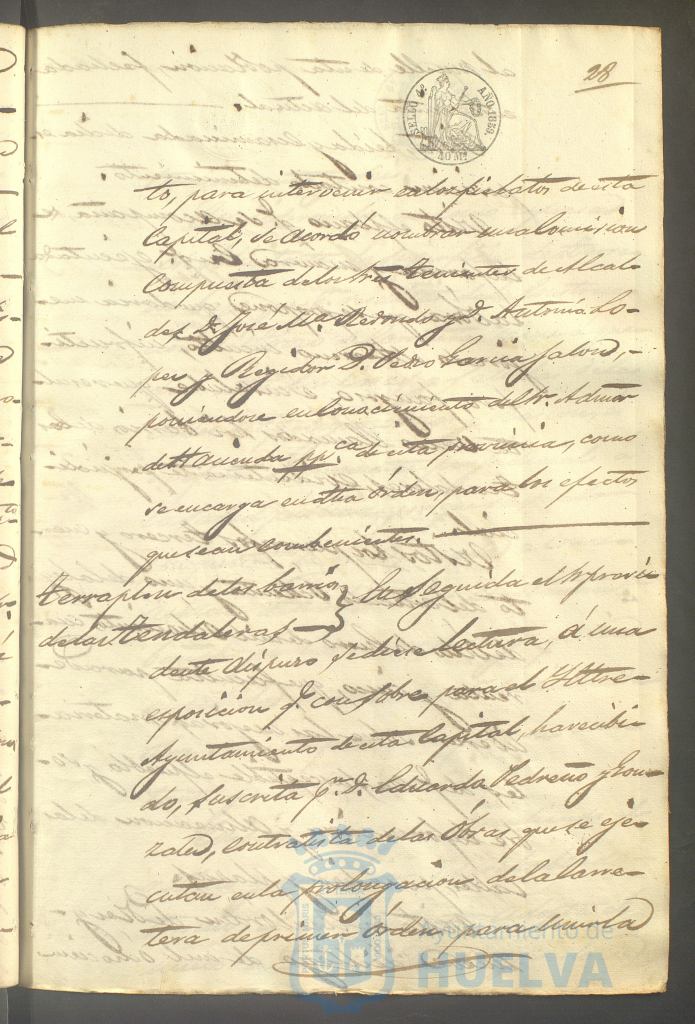 28
SELLO 4º AÑO 1859.
40 Ms
to, para intervenir en los fielatos de esta
Capital, se acordó nombrar una Comision
compuesta de los Sres. tenientes de Alcal-
des D. José Mª Redondo y D. Antonio Lo-
pez y Regidor D. Pedro Garcia Jalon, -
poniendose en conocimiento del Sr. Admor
de Hacienda pp.ca de esta provincia, como
se encarga en dha órden, para los efectos
que sean combenientes.
terraplen de los barrios } En seguida el Sr. presi-
de las tendaleras
dente dispuso se diese lectura, á una
esposicion qe. con sobre para el Illtre
Ayuntamiento de esta Capital, ha recibi-
do, suscrita pr. D. Eduardo Pedreño y Gon-
zalez, contratista de las Obras que se eje-
cutan en la prolongacion de la Carre-
tera de primer órden, para unirla
Ayuntamiento de
HUELVA